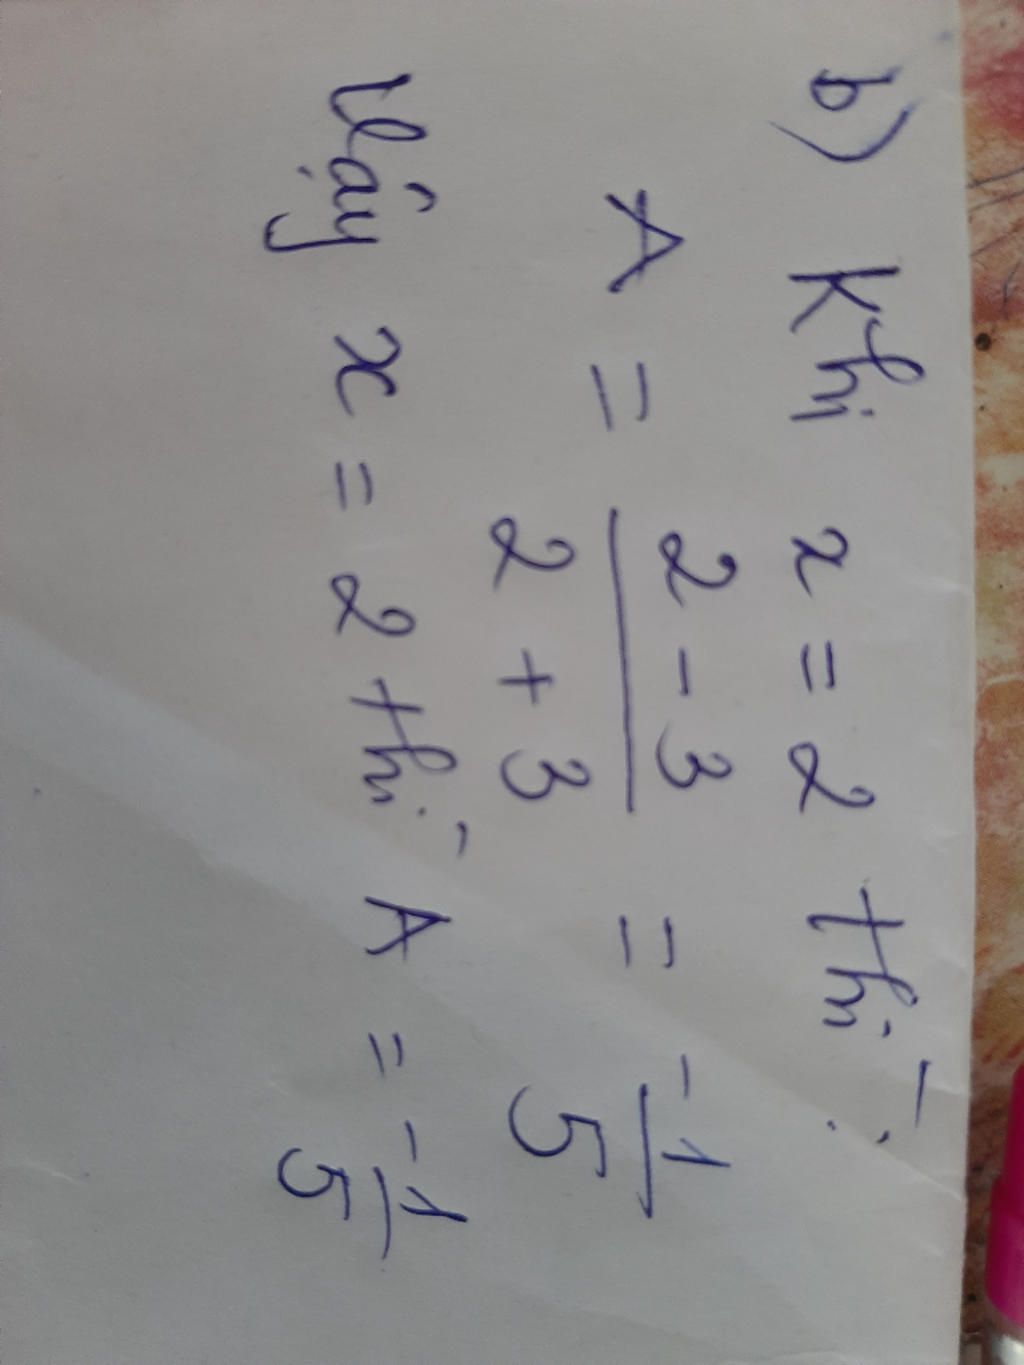 b) Khi x = 2 thì :
A = \frac{2 - 3}{2 + 3} = \frac{-1}{5}
Vậy x = 2 thì A = \frac{-1}{5}